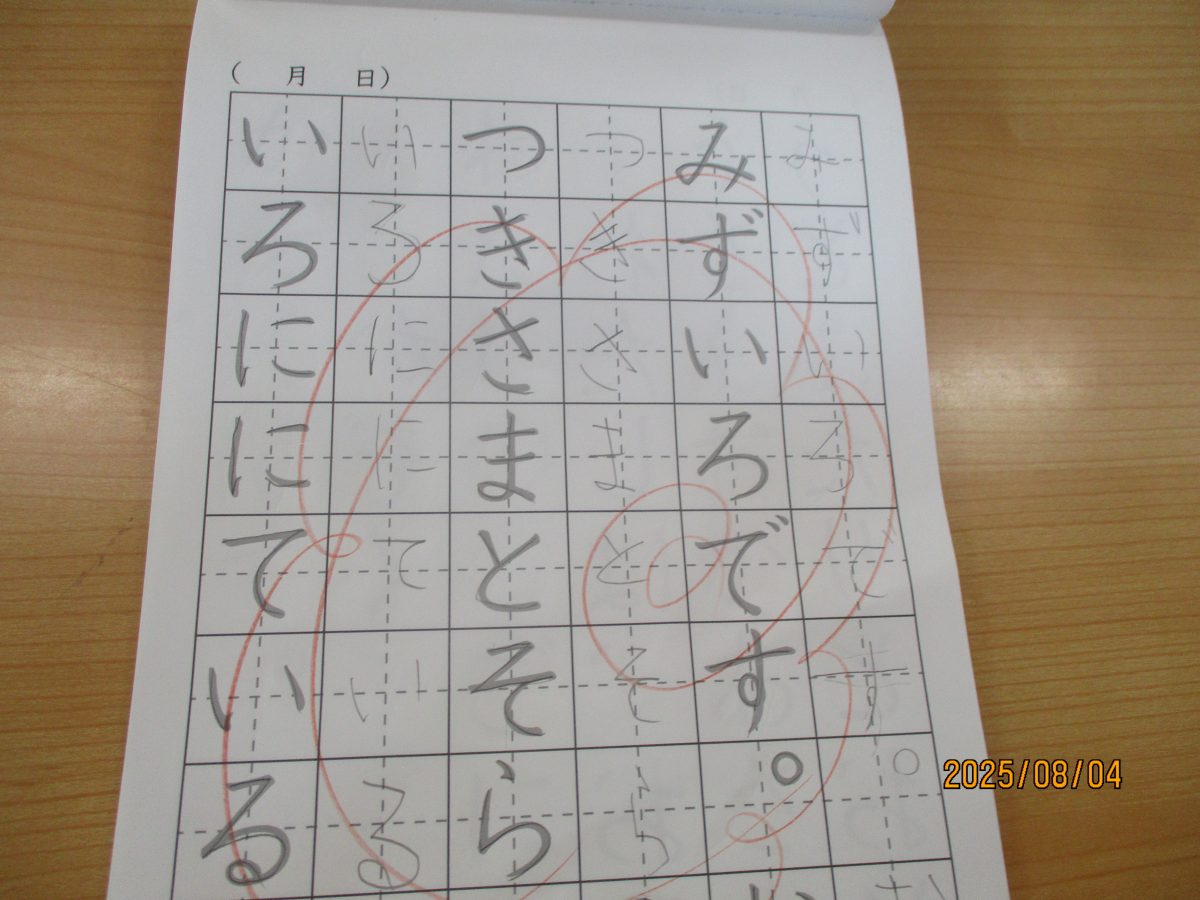 （　月　日）
みずいろです。
みずいろです。
つきさまとそら
つきさまとそら
いろににている
いろににている
2025/08/04